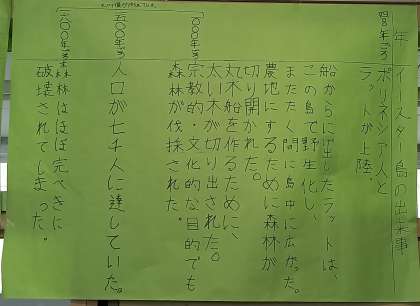 年　イースター島の出来事
四〇〇年ごろ　ポリネシア人と
ラットが上陸。
船からにげ出したラットは、
この島で野生化し、
またたく間に島中に広がった。
農地にするために森林が
切り開かれた。
丸木船を作るために、
太い木が切り出された。
一〇〇〇年ごろ　宗教的・文化的な目的でも
森林が伐採された。
一五〇〇年ごろ　人口が七千人に達していた。
一六〇〇年ごろ　森林はほぼ完ぺきに
破壊されてしまった。